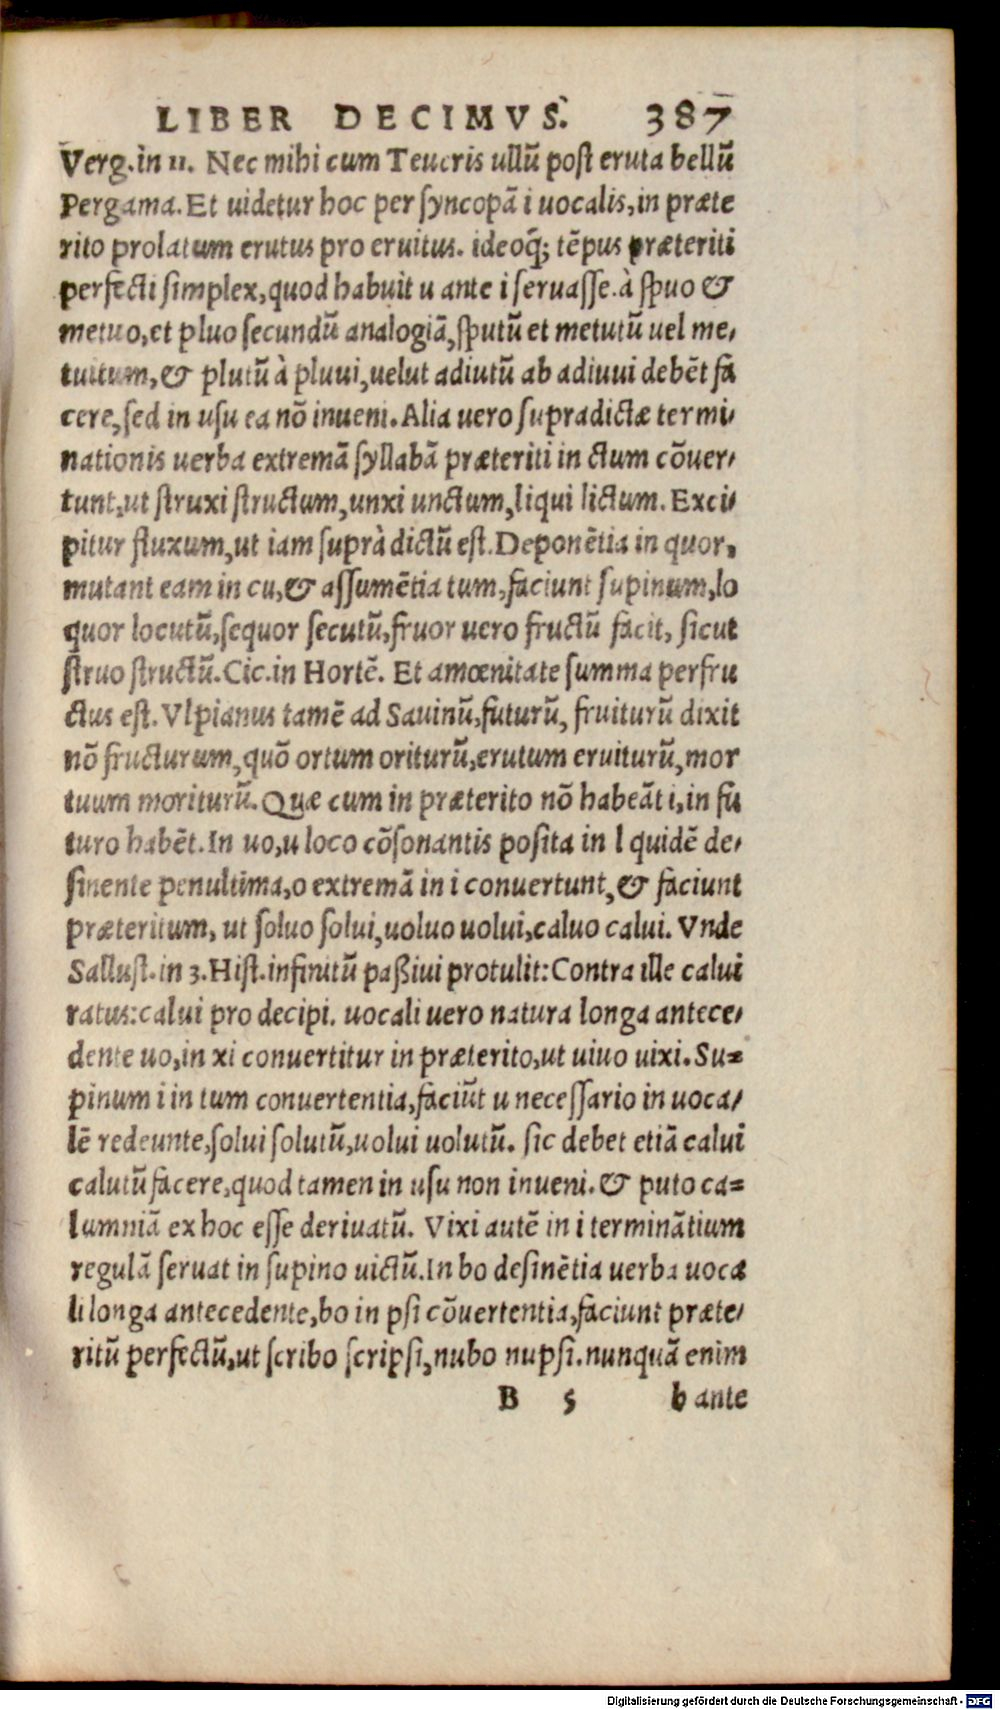 LIBER DECIMVS. 387
Verg. in 11. Nec mihi cum Teucris ullū post eruta bellū
Pergama. Et uidetur hoc per syncopā i uocalis, in præte
rito prolatum erutus pro eruitus. ideoq́; tēpus præteriti
perfecti simplex, quod habuit u ante i seruasse. à spuo &
metuo, et pluo secundū analogiā, sputū et metutū uel me/
tuitum, & plutū à pluui, uelut adiutū ab adiuui debēt fa
cere, sed in usu ea nō inueni. Alia uero supradictæ termi/
nationis uerba extremā syllabā præteriti in ctum cōuer/
tunt, ut struxi structum, unxi unctum, liqui lictum. Exci/
pitur fluxum, ut iam suprà dictū est. Deponētia in quor,
mutant eam in cu, & assumētia tum, faciunt supinum, lo
quor locutū, sequor secutū, fruor uero fructū facit, sicut
struo structū. Cic. in Hortē. Et amœnitate summa perfru
ctus est. Vlpianus tamē ad Sauinū, futurū, fruiturū dixit
nō fructurum, quō ortum oriturū, erutum eruiturū, mor
tuum moriturū. Quæ cum in præterito nō habeāt i, in fu
turo habēt. In uo, u loco cōsonantis posita in l quidē de/
sinente penultima, o extremā in i conuertunt, & faciunt
præteritum, ut soluo solui, uoluo uolui, caluo calui. Vnde
Sallust. in 3. Hist. infinitū paßiui protulit: Contra ille calui
ratus: calui pro decipi. uocali uero natura longa antece/
dente uo, in xi conuertitur in præterito, ut uiuo uixi. Su=
pinum i in tum conuertentia, faciūt u necessario in uoca/
lē redeunte, solui solutū, uolui uolutū. sic debet etiā calui
calutū facere, quod tamen in usu non inueni. & puto ca=
lumniā ex hoc esse deriuatū. Vixi autē in i terminātium
regulā seruat in supino uictū. In bo desinētia uerba uoca
li longa antecedente, bo in psi cōuertentia, faciunt præte/
ritū perfectū, ut scribo scripsi, nubo nupsi. nunquā enim
B 5 b ante
Digitalisierung gefördert durch die Deutsche Forschungsgemeinschaft - DFG